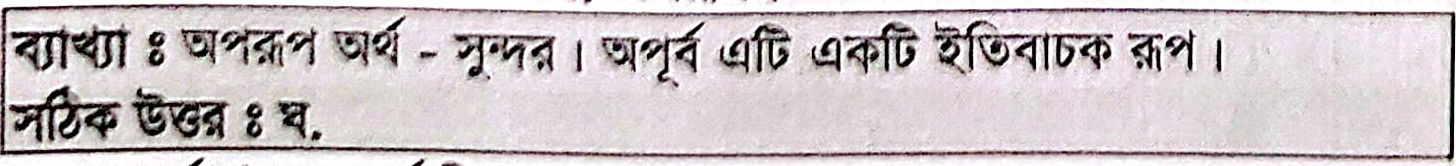 ব্যাখ্যা ঃ অপরূপ অর্থ - সুন্দর। অপূর্ব এটি একটি ইতিবাচক রূপ।
সঠিক উত্তর ঃ ঘ.